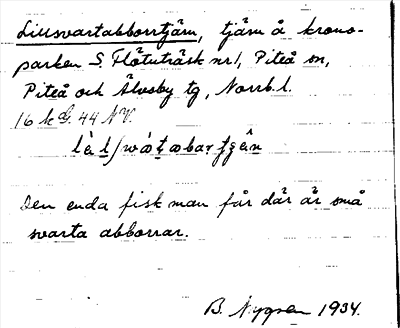 Lillsvartabborrtjärn, tjärn å krono-
parken S. Flötuträsk nr 1, Piteå sn,
Piteå och Älvsby tg, Norrb. l.
16 k G. 44 NV.
Den enda fisk man får där är små
svarta abborrar.
B. Nygren 1934.